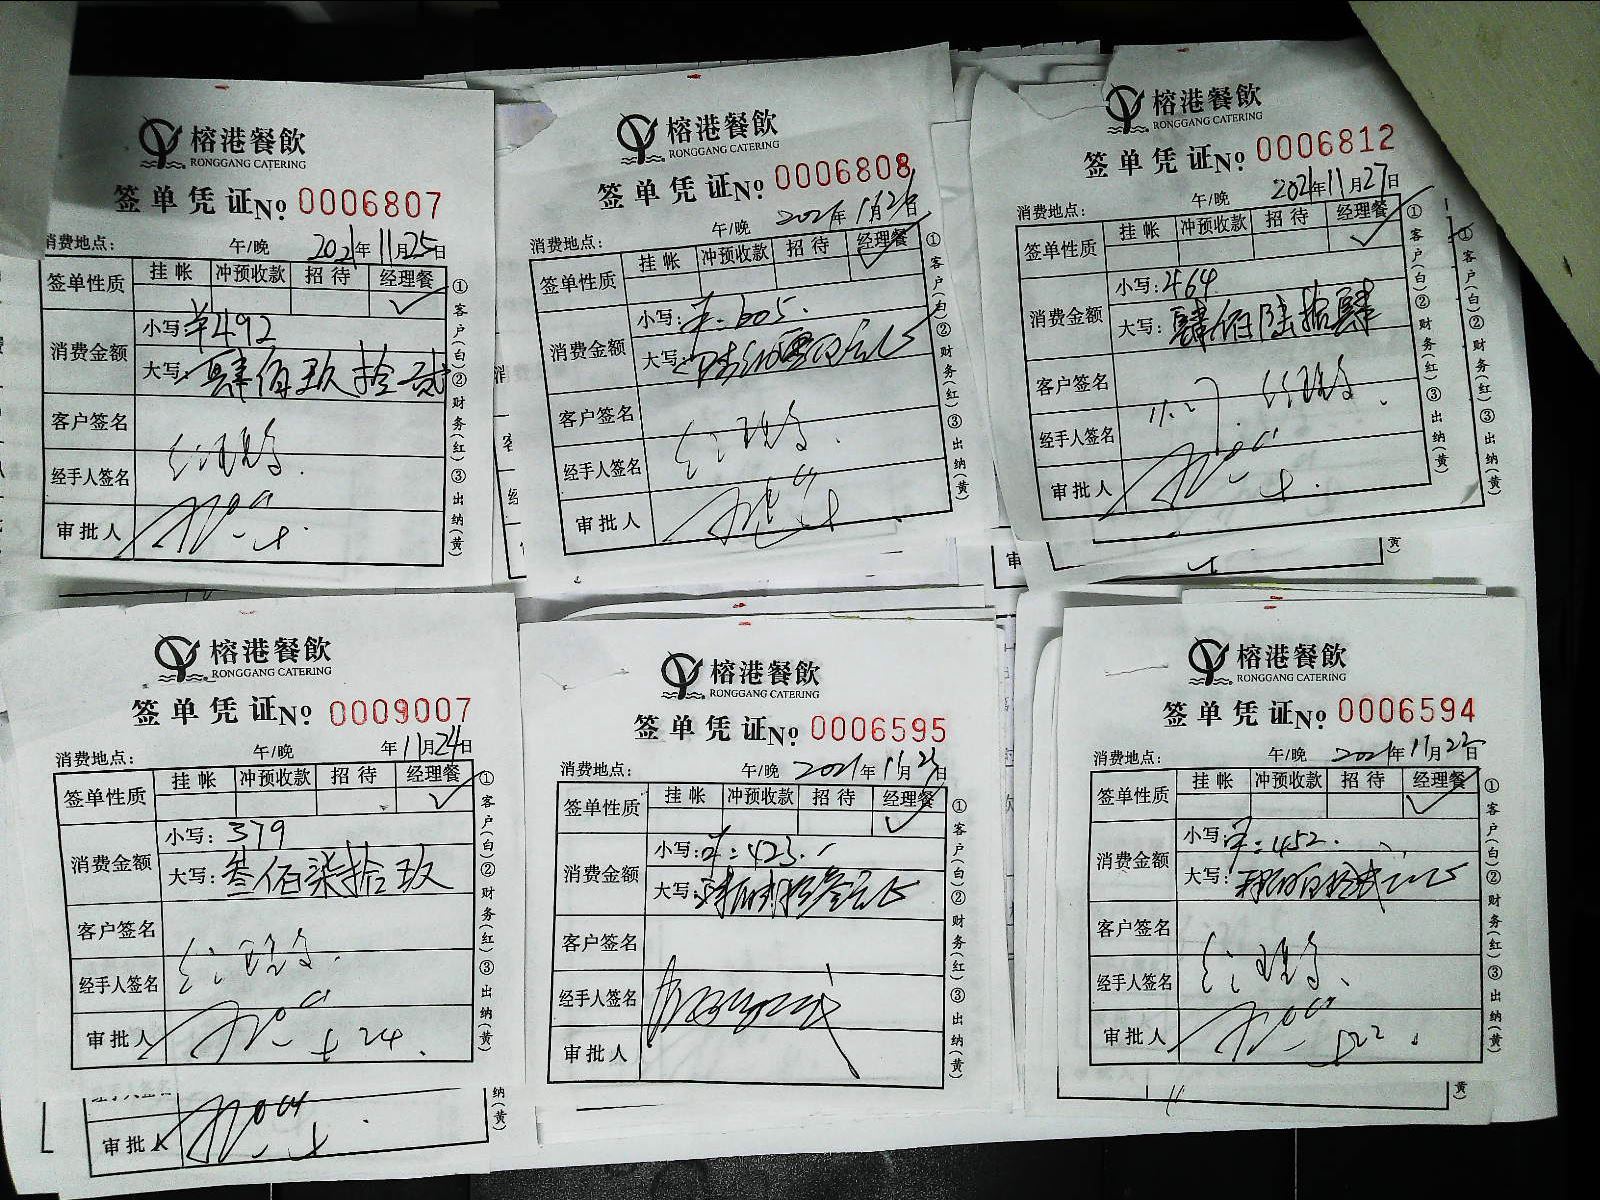 榕港餐飲
RONGGANG CATERING
签单凭证№ 0006807
消费地点: 午/晚 2021年11月25日
签单性质 挂帐 冲预收款 招待 经理餐
✓
消费金额 小写:¥492
大写:肆佰玖拾贰
客户签名
经手人签名
审批人
①客户(白)②财务(红)③出纳(黄)
榕港餐飲
RONGGANG CATERING
签单凭证№ 0006808
消费地点: 午/晚 2021年11月26日
签单性质 挂帐 冲预收款 招待 经理餐
✓
消费金额 小写:¥:605.
大写:
客户签名
经手人签名
审批人
①客户(白)②财务(红)③出纳(黄)
榕港餐飲
RONGGANG CATERING
签单凭证№ 0006812
消费地点: 午/晚 2021年11月27日
签单性质 挂帐 冲预收款 招待 经理餐
✓
消费金额 小写:464
大写:肆佰陆拾肆
客户签名
经手人签名
审批人
①客户(白)②财务(红)③出纳(黄)
①客户(白)②财务(红)③出纳(黄)
榕港餐飲
RONGGANG CATERING
签单凭证№ 0009007
消费地点: 午/晚 年11月24日
签单性质 挂帐 冲预收款 招待 经理餐
✓
消费金额 小写:379
大写:叁佰柒拾玖
客户签名
经手人签名
审批人 24
①客户(白)②财务(红)③出纳(黄)
审批人
纳(黄)
榕港餐飲
RONGGANG CATERING
签单凭证№ 0006595
消费地点: 午/晚 2021年11月 日
签单性质 挂帐 冲预收款 招待 经理餐
✓
消费金额 小写:¥:423.
大写:
客户签名
经手人签名
审批人
①客户(白)②财务(红)③出纳(黄)
榕港餐飲
RONGGANG CATERING
签单凭证№ 0006594
消费地点: 午/晚 2021年11月22日
签单性质 挂帐 冲预收款 招待 经理餐
✓
消费金额 小写:¥:452.
大写:
客户签名
经手人签名
审批人
①客户(白)②财务(红)③出纳(黄)
黄)